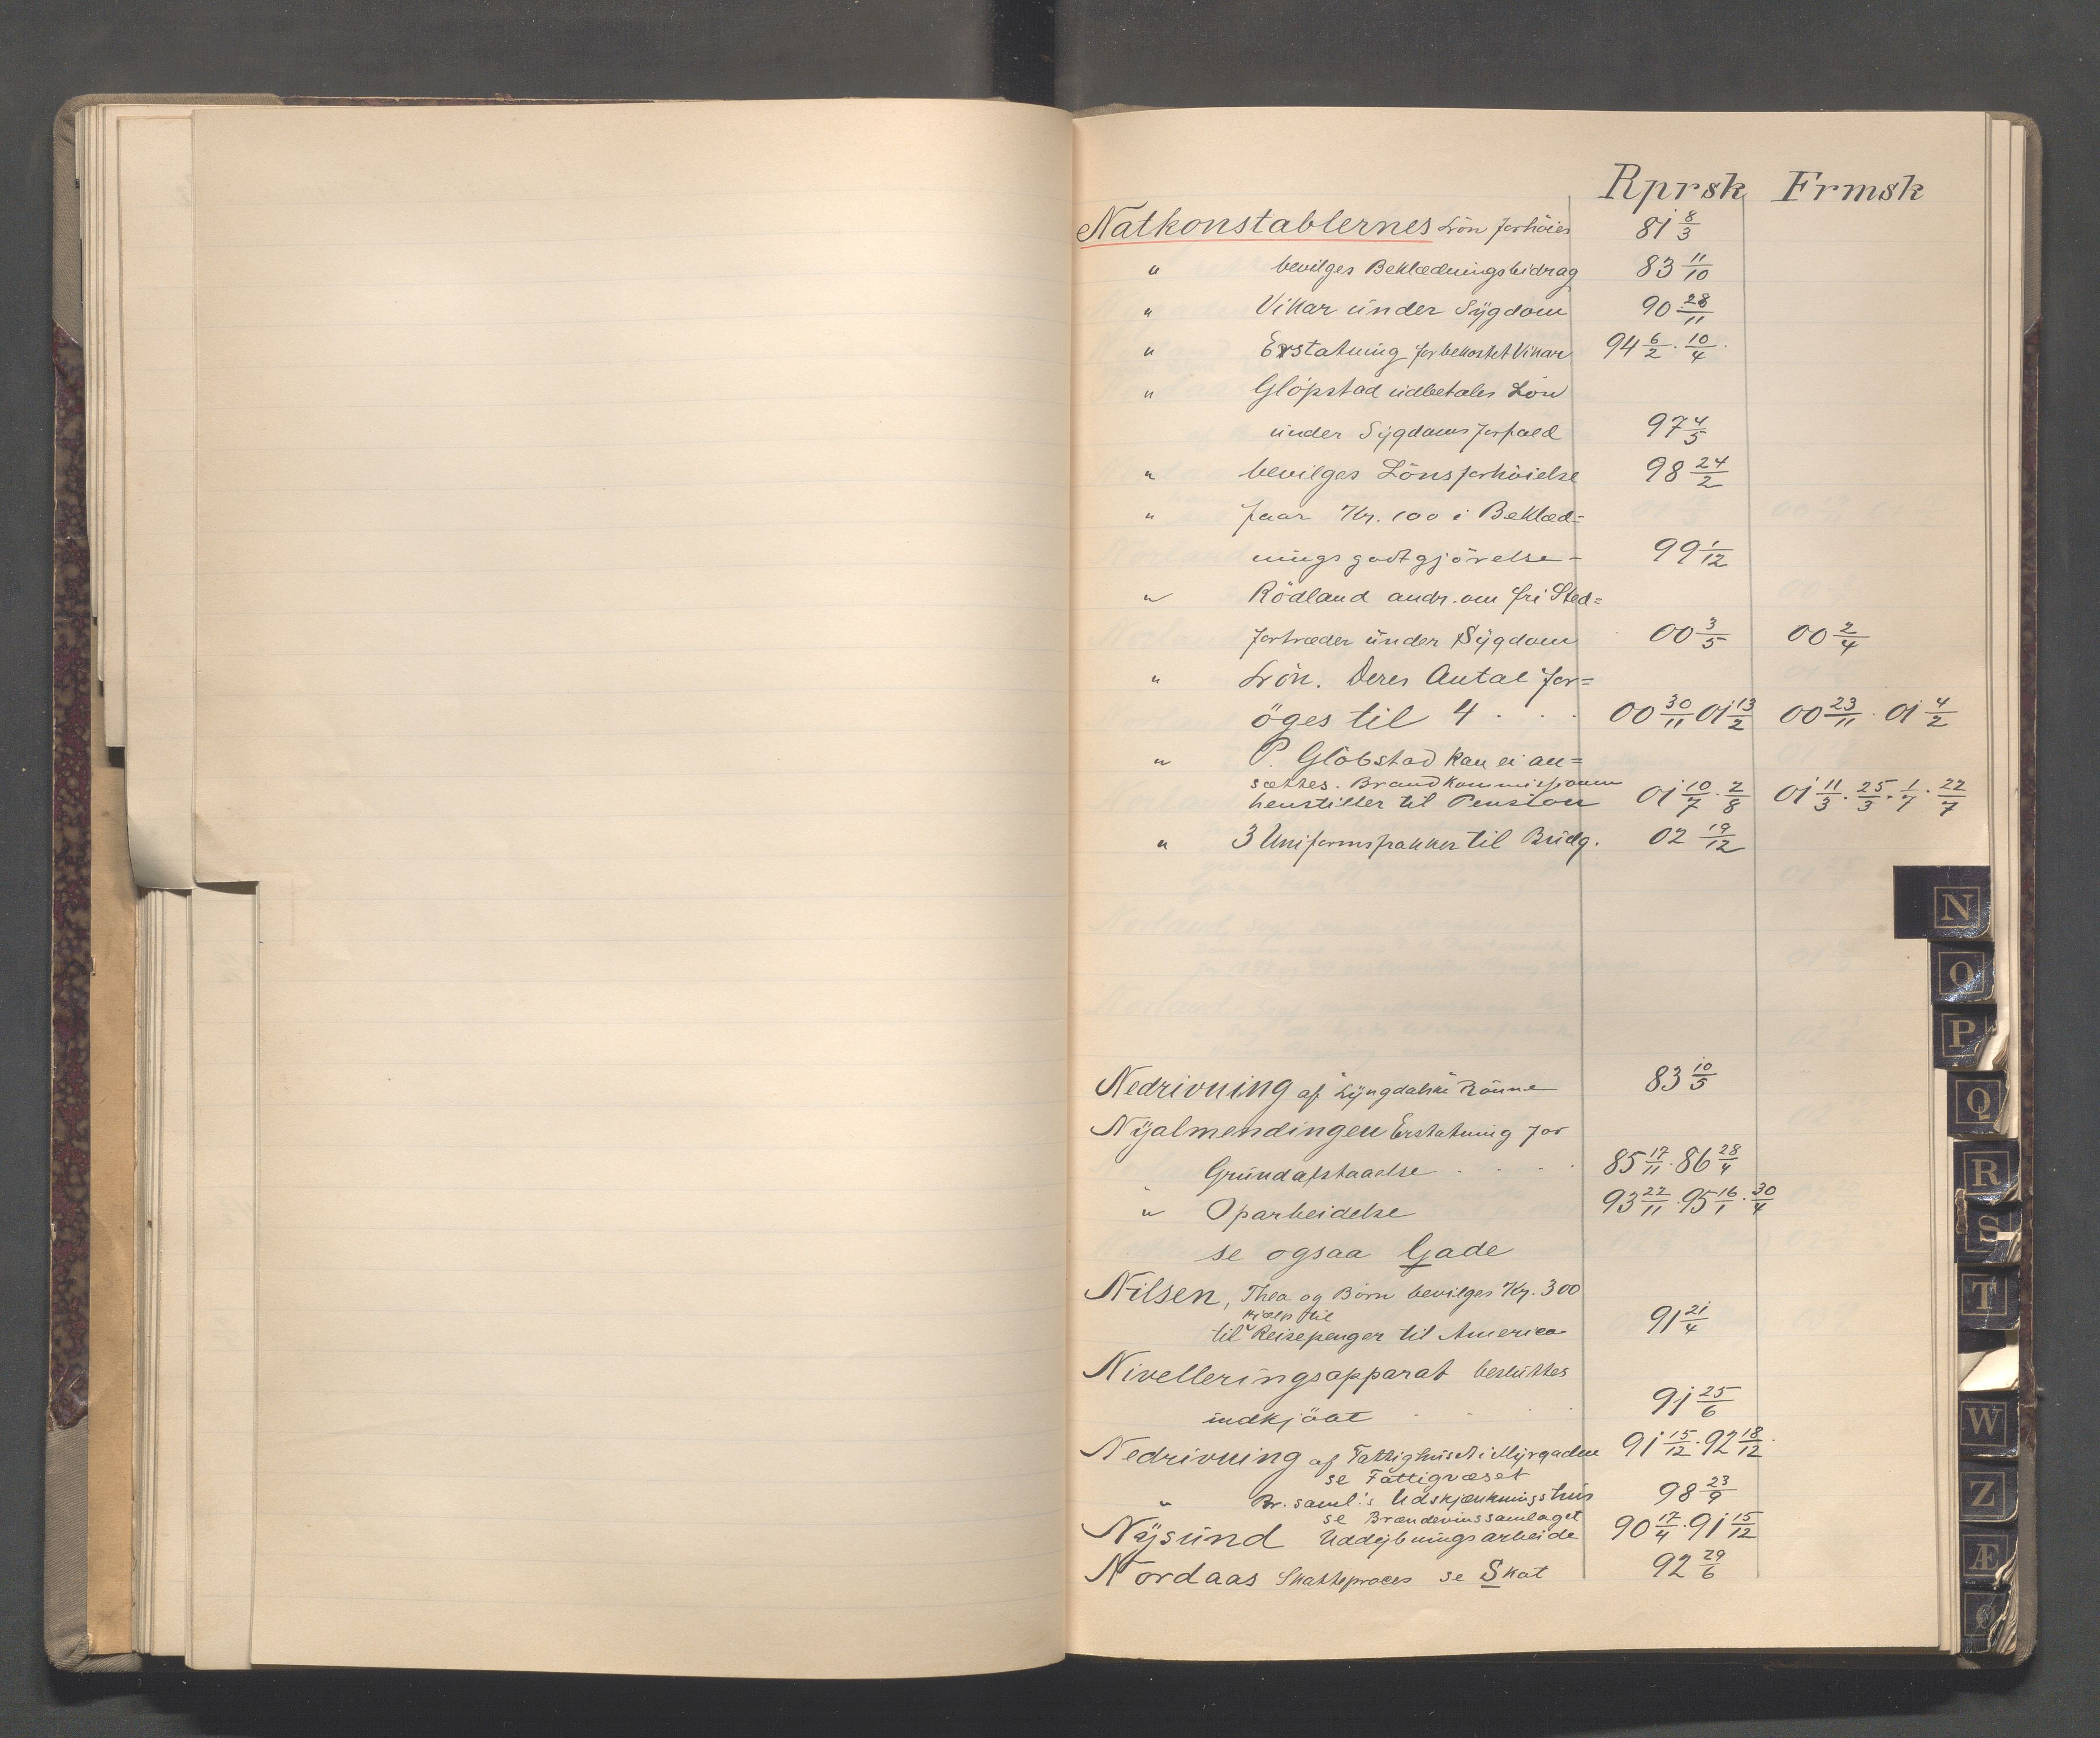 Rprsk Frmsk
Natkonstablernes Lön forhöies 81 8/3
" bevilges Beklædningsbidrag 83 11/10
" Vikar under Sygdom 90 28/11
" Erstatning for bekostet Vikar 94 6/2 . 10/4 .
" Glöpstad udbetales Lön
under Sygdomsforfald 97 4/5
" bevilges Lönsforhöielse 98 24/2
" faar Kr. 100 i Beklæd=
ningsgodtgjörelse - 99 1/12
" Rödland andr. om fri Sted=
fortræder under Sygdom 00 3/5 00 2/4
" Lön. Deres Antal for=
öges til 4 . . . 00 30/11 01 13/2 00 23/11 . 01 4/2
" P. Globstad kan ei an=
sættes. Brandkommissionen
henstiller til Pension 01 10/7 . 2/8 01 11/3 . 25/3 . 1/7 . 22/7
" 3 Uniformsfrakker til Brüdg. 02 19/12
Nedrivning af Lyngdalske Rönne 83 10/5
Nyalmendingen Erstatning for
Grundafstaaelse . . . . 85 17/11 . 86 28/4
" Oparbeidelse 93 22/11 . 95 16/1 . 30/4
se ogsaa Gade
Nilsen, Thea og Börn bevilges Kr. 300
hjælp til
til Reisepenger til America 91 21/4
Nivelleringsapparat besluttes
indkjöbt . . . . 91 25/6
Nedrivning af Fattighuset i Myrgaden 91 15/12 . 92 18/12 .
se Fattigvæset
" Br. saml.'s Udskjænkningshus 98 23/9
se Brændevinssamlaget
Nysund Uddybningsarbeide 90 17/4 . 91 15/12
Nordaas Skatteproces se Skat 92 29/6
N
O
P
Q
R
S
T
W
Z
Æ
Ø